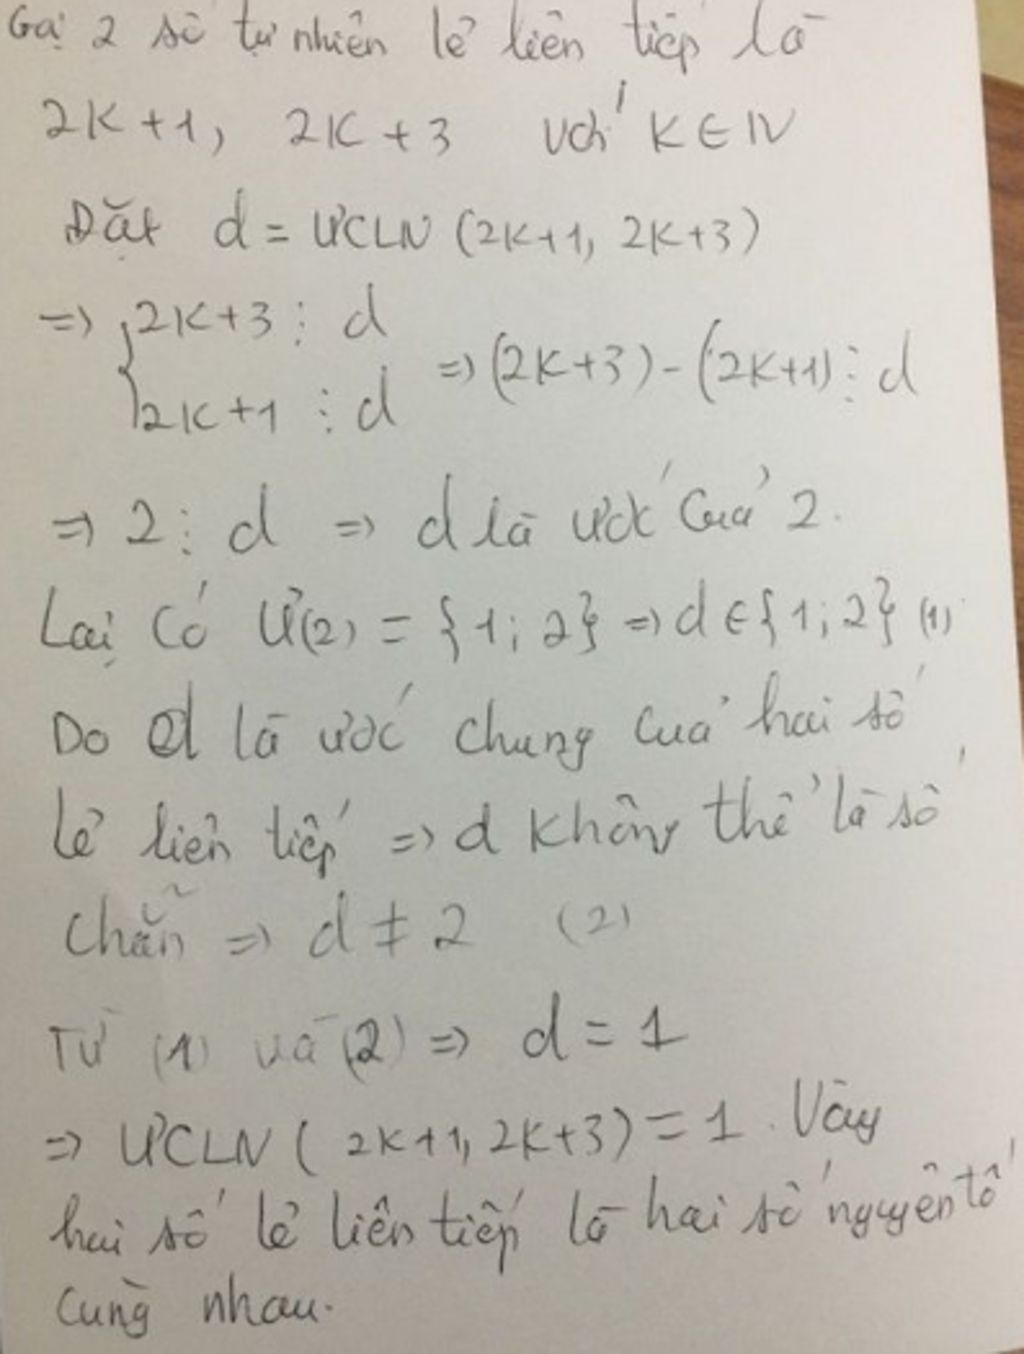 Gọi 2 số tự nhiên lẻ liên tiếp là
2K+1, 2K+3 với K∈N
Đặt d = ƯCLN (2K+1, 2K+3)
=> { 2K+3 ⋮ d
2K+1 ⋮ d => (2K+3) - (2K+1) ⋮ d
=> 2 ⋮ d => d là ước của 2.
Lại có Ư(2) = {1; 2} => d ∈ {1; 2} (1)
Do d là ước chung của hai số
lẻ liên tiếp => d không thể là số
chẵn => d ≠ 2 (2)
Từ (1) và (2) => d = 1
=> ƯCLN ( 2K+1, 2K+3) = 1. Vậy
hai số lẻ liên tiếp là hai số nguyên tố
cùng nhau.